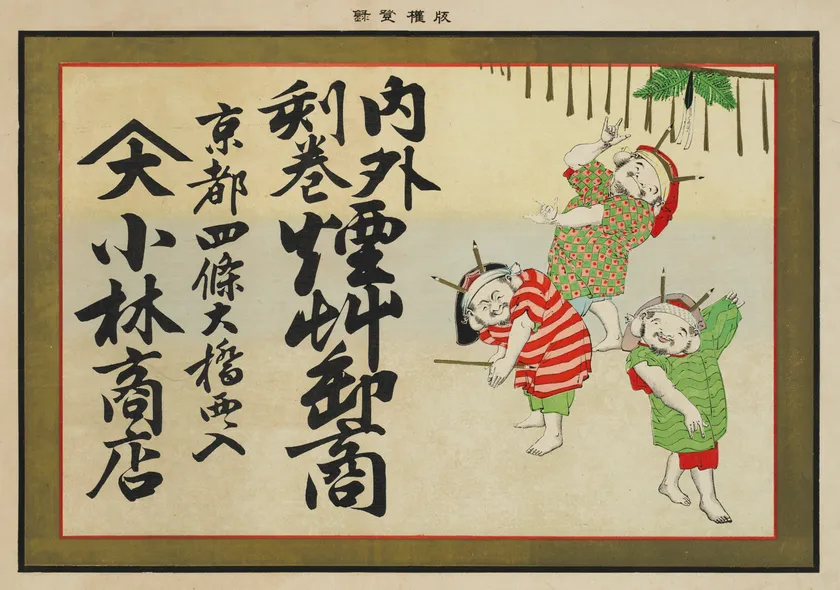 版權登録
内外
刻巻
煙艸卸商
京都四條大橋西入
𠆢大 小林商店